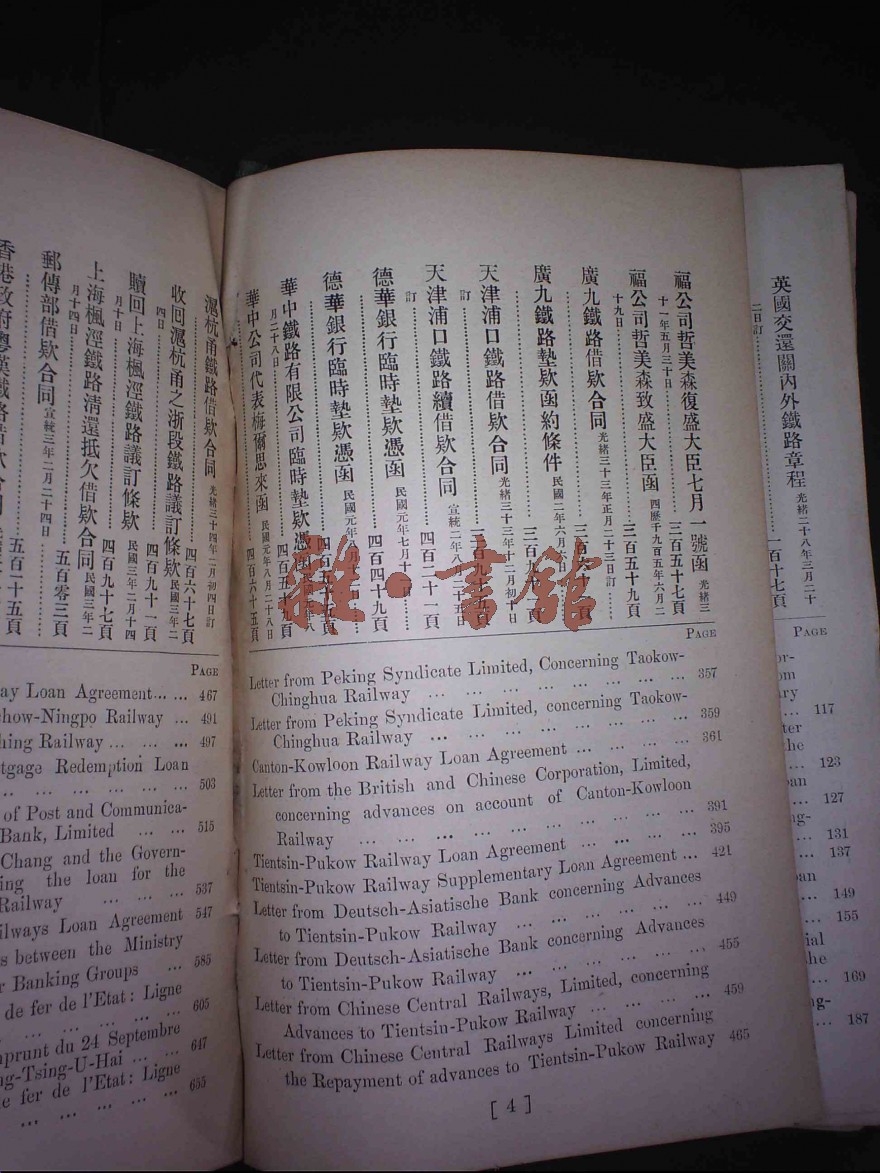 英國交還關內外鐵路章程 光緒二十八年三月二十
二日訂 一百十七頁
福公司哲美森復盛大臣七月一號函 光緒三
十一年五月三十日 三百五十七頁
福公司哲美森致盛大臣函 西歷千九百五年六月二
十九日 三百五十九頁
廣九鐵路借欵合同 光緒三十三年正月二十三日訂
三百六十一頁
廣九鐵路墊欵函約條件 民國二年六月六日
三百九十一頁
天津浦口鐵路借欵合同 光緒三十三年十二月初十日
訂 三百九十五頁
天津浦口鐵路續借欵合同 宣統二年八月二十五日
訂 四百二十一頁
德華銀行臨時墊欵憑函 民國元年七月十
四百四十九頁
德華銀行臨時墊欵憑函 民國元年八月
四百五十五頁
華中鐵路有限公司臨時墊欵憑函 民國元年八
月二十八日 四百五十九頁
華中公司代表梅爾思來函 民國元年八月二十八日
四百六十五頁
滬杭甬鐵路借欵合同 光緒三十四年二月初四日訂
四百六十七頁
收回滬杭甬之浙段鐵路議訂條欵 民國三年二月
四日 四百九十一頁
贖回上海楓涇鐵路議訂條欵 民國三年二月十四
月十日 四百九十七頁
上海楓涇鐵路清還抵欠借欵合同 民國三年二
月十四日 五百零三頁
郵傳部借欵合同 宣統三年二月二十四日
五百十五頁
香港政府粵漢鐵路借欵合同
雜·書館
PAGE
Letter from Peking Syndicate Limited, Concerning Taokow-
Chinghua Railway ... 357
Letter from Peking Syndicate Limited, concerning Taokow-
Chinghua Railway ... 359
Canton-Kowloon Railway Loan Agreement ... 361
Letter from the British and Chinese Corporation, Limited,
concerning advances on account of Canton-Kowloon
Railway ... 391
Tientsin-Pukow Railway Loan Agreement ... 395
Tientsin-Pukow Railway Supplementary Loan Agreement ... 421
Letter from Deutsch-Asiatische Bank concerning Advances
to Tientsin-Pukow Railway ... 449
Letter from Deutsch-Asiatische Bank concerning Advances
to Tientsin-Pukow Railway ... 455
Letter from Chinese Central Railways, Limited, concerning
Advances to Tientsin-Pukow Railway ... 459
Letter from Chinese Central Railways Limited concerning
the Repayment of advances to Tientsin-Pukow Railway 465
[ 4 ]
PAGE
ay Loan Agreement... ... 467
how-Ningpo Railway ... 491
hing Railway ... 497
tgage Redemption Loan
... 503
of Post and Communica-
Bank, Limited ... 515
Chang and the Govern-
ing the loan for the
Railway ... 537
ilways Loan Agreement 547
s between the Ministry
r Banking Groups ... 585
de fer de l'Etat: Ligne
... 605
mprunt du 24 Septembre
ng-Tsing-U-Hai ... 647
e fer de l'Etat: Ligne
... 655
PAGE
or-
om
ary
... 117
tter
the
... 123
oan
... 127
ng-
... 131
... 137
oan
... 149
... 155
cial
the
... 169
ng-
... 187